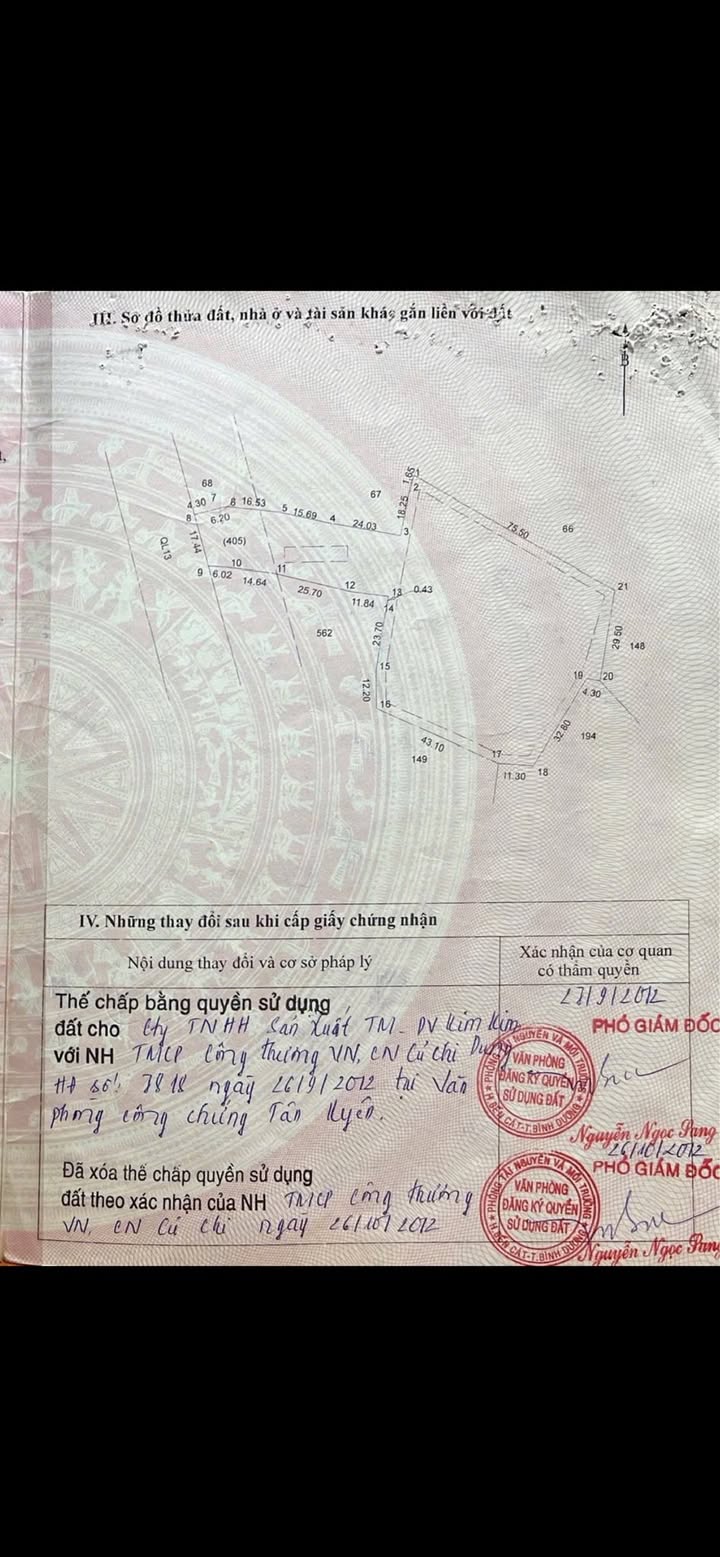 III. Sơ đồ thửa đất, nhà ở và tài sản khác gắn liền với đất
B
68
67
66
1
1.65
2
18.25
3
4.30
7
8
16.53
5
15.69
4
24.03
75.50
8
6.20
(405)
QL13
17.44
9
6.02
10
14.64
11
25.70
12
11.84
13
0.43
14
21
29.50
148
562
23.70
15
12.20
16
19
20
4.30
32.80
194
43.10
149
17
11.30
18
IV. Những thay đổi sau khi cấp giấy chứng nhận
Nội dung thay đổi và cơ sở pháp lý
Xác nhận của cơ quan
có thẩm quyền
Thế chấp bằng quyền sử dụng
đất cho Cty TNHH Sản Xuất TM - DV Kim Kim
với NH TMCP Công thương VN, CN Củ Chi
HĐ số: 3818 ngày 26/9/2012 tại Văn
phòng công chứng Tân
27/9/2012
PHÓ GIÁM ĐỐC
PHÒNG TÀI NGUYÊN VÀ MÔI TRƯỜNG
VĂN PHÒNG
ĐĂNG KÝ QUYỀN
SỬ DỤNG ĐẤT
H BẾN CÁT-T.BÌNH DƯƠNG
Nguyễn Ngọc Sang
Đã xóa thế chấp quyền sử dụng
đất theo xác nhận của NH TMCP Công thương
VN, CN Củ Chi ngày 26/10/2012
26/10/2012
PHÓ GIÁM ĐỐC
PHÒNG TÀI NGUYÊN VÀ MÔI TRƯỜNG
VĂN PHÒNG
ĐĂNG KÝ QUYỀN
SỬ DỤNG ĐẤT
H BẾN CÁT-T.BÌNH DƯƠNG
Nguyễn Ngọc Sang